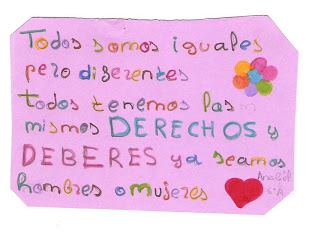 Todos somos iguales
pero diferentes
todos tenemos las
mismos DERECHOS y
DEBERES ya seamos
hombres o mujeres
6ºA